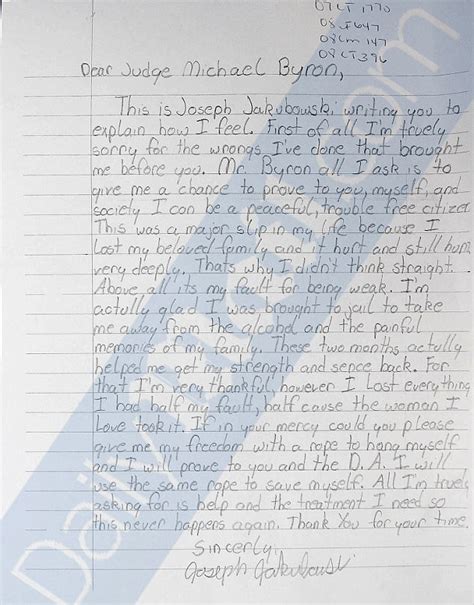 07CT 1770
08CF647
08Cm 147
08CT396
Dear Judge Michael Byron,
This is Joseph Jakubowski writing you to
explain how I feel. First of all I'm truely
sorry for the wrongs I've done that brought
me before you. Mr. Byron all I ask is to
give me a chance to prove to you, myself, and
society I can be a peaceful, trouble free citizen.
This was a major slip in my life because I
lost my beloved family and it hurt and still hurts
very deeply. Thats why I didn't think straight.
Above all its my fault for being weak. I'm
actully glad I was brought to jail to take
me away from the alcohol and the painful
memories of my family. These two months actully
helped me get my strength and sence back. For
that I'm very thankful, however I lost everything
I had half my fault, half cause the woman I
love took it. If in your mercy could you please
give me my freedom with a rope to hang myself
and I will prove to you and the D.A. I will
use the same rope to save myself. All I'm truely
asking for is help and the treatment I need so
this never happens again. Thank You for your time.
Sincerly,
Joseph Jakubowski